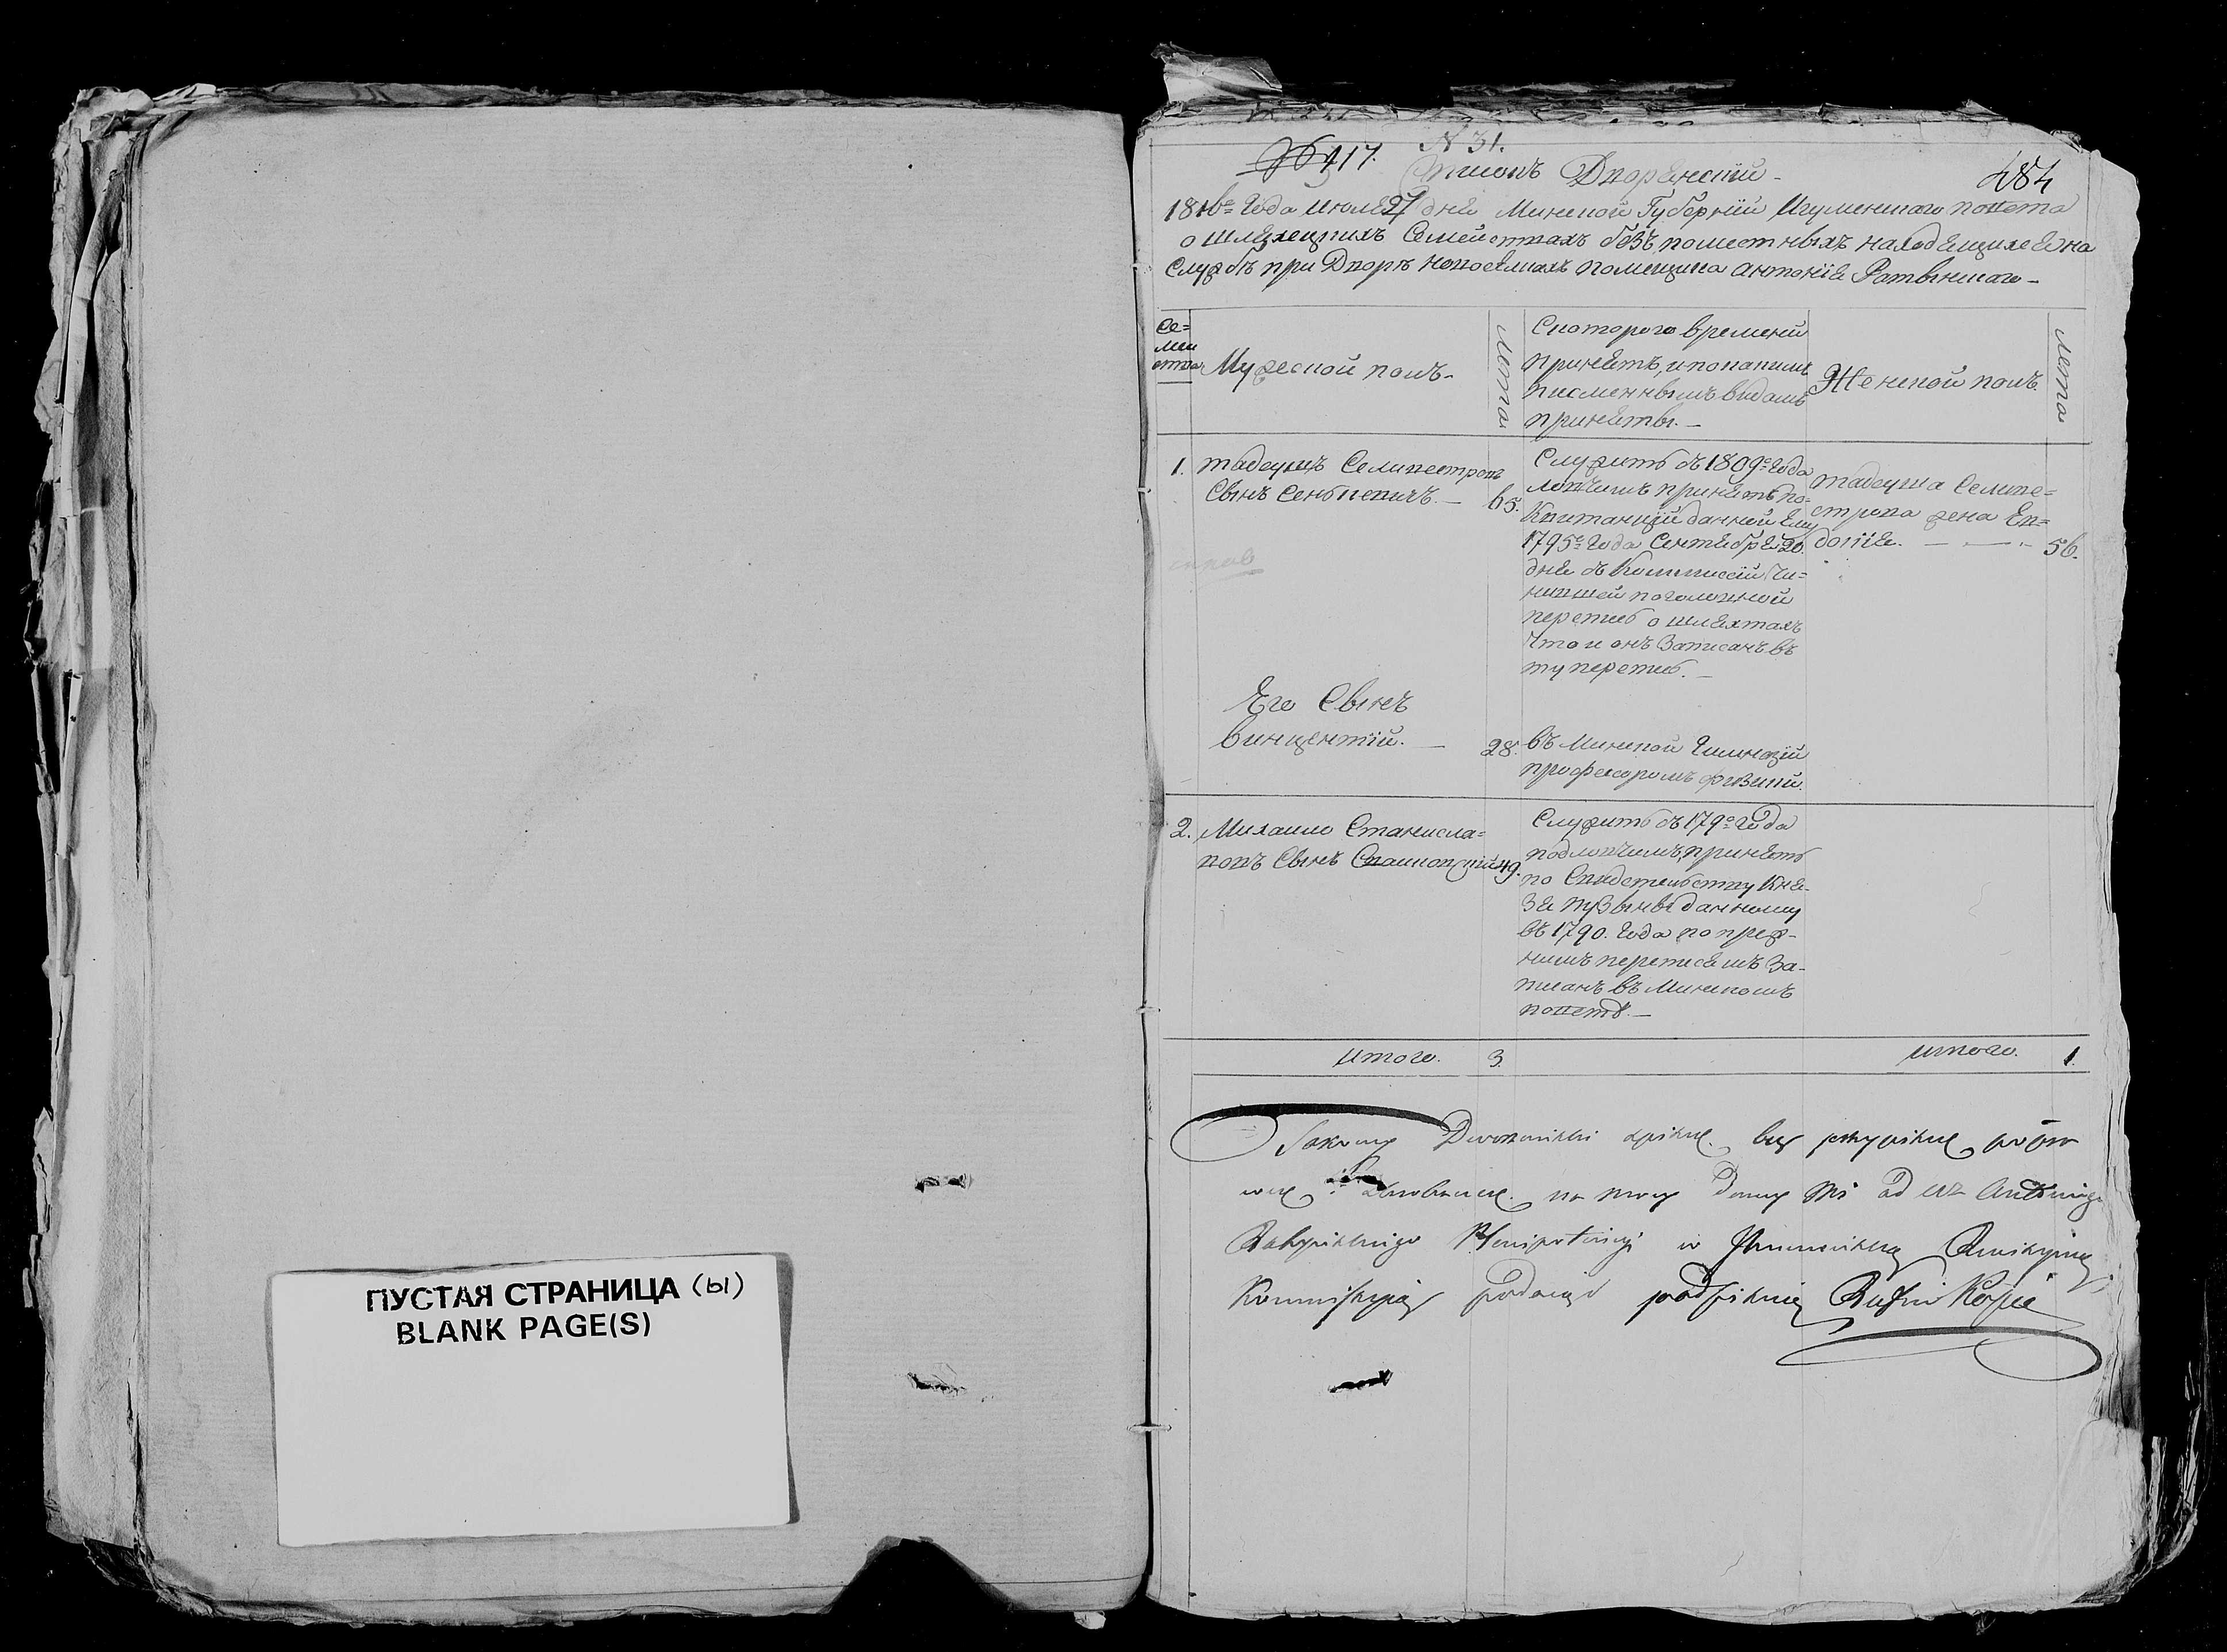 ПУСТАЯ СТРАНИЦА (ы)
BLANK PAGE(S)
417. N 31.
484
Списокъ Дворянский
1816го Года июля 27 дня Минской Губернїи Игуменского повета
о шляхецкихъ Семействахъ безъ поместныхъ находящихся на
Службѣ при Дворѣ помещика Антонїя Ратынского
Се=
мей
ства
Мужеской полъ
Лета
Скоторого времени
принятъ, и по каким
писменнымъ видамъ
приняты.
Женской полъ
Лета
1. Тадеушъ Селивестровъ
Сынъ Сенкевичъ. 65.
Служитъ съ 1809го года
принятъ по
Квитанцїи данной Ему
1795го Года Сентября 20
дня съ Коммиссїи Чи=
нившей поголовной
перепись о шляхтахъ
Что и онъ Записанъ въ
ту перепись.
Тадеуша Селиве=
строва жена Ев=
докїя. 56.
Его Сынъ
Винцентїй. 28.
въ Минской Гимназїи
профессоромъ физики.
2. Михаило Станисла=
вовъ Сынъ 49.
Служитъ съ 179 года
принятъ
по Свидетельству Кня-
зя Пузыны данному
въ 1790. Года по преж-
нимъ переписямъ За-
писанъ въ Минскомъ
поветѣ.
итого. 3.
итого. 1.
Takowy Dworzanski spisek
na mocy Daney Mi od Antoniego
Ratynskiego Plenipotencyi w
Kommissyią podaiąc podpisuię